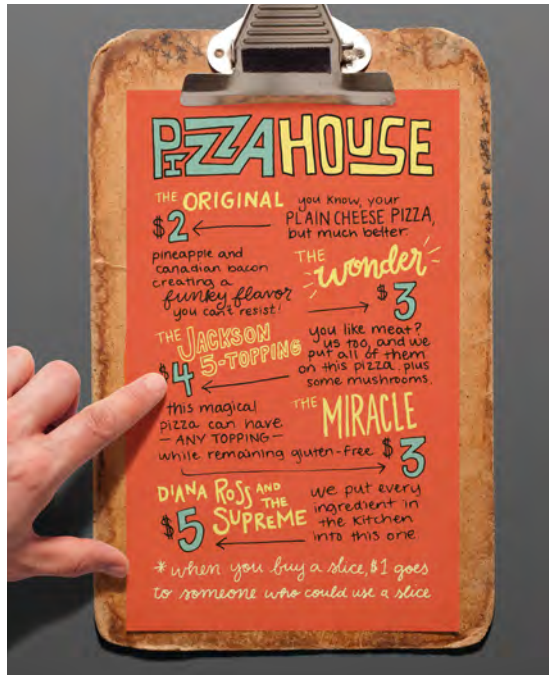 PIZZA HOUSE
THE ORIGINAL
$2
you know, your
PLAIN CHEESE PIZZA,
but much better.
pineapple and
canadian bacon
creating a
funky flavor
you can't resist!
THE
wonder
$3
THE JACKSON
5-TOPPING
$4
you like meat?
us too, and we
put all of them
on this pizza. plus
some mushrooms.
this magical
pizza can have
—ANY TOPPING—
while remaining gluten-free
THE MIRACLE
$3
DIANA ROSS AND
THE
SUPREME
$5
we put every
ingredient in
the kitchen
into this one
*when you buy a slice, $1 goes
to someone who could use a slice